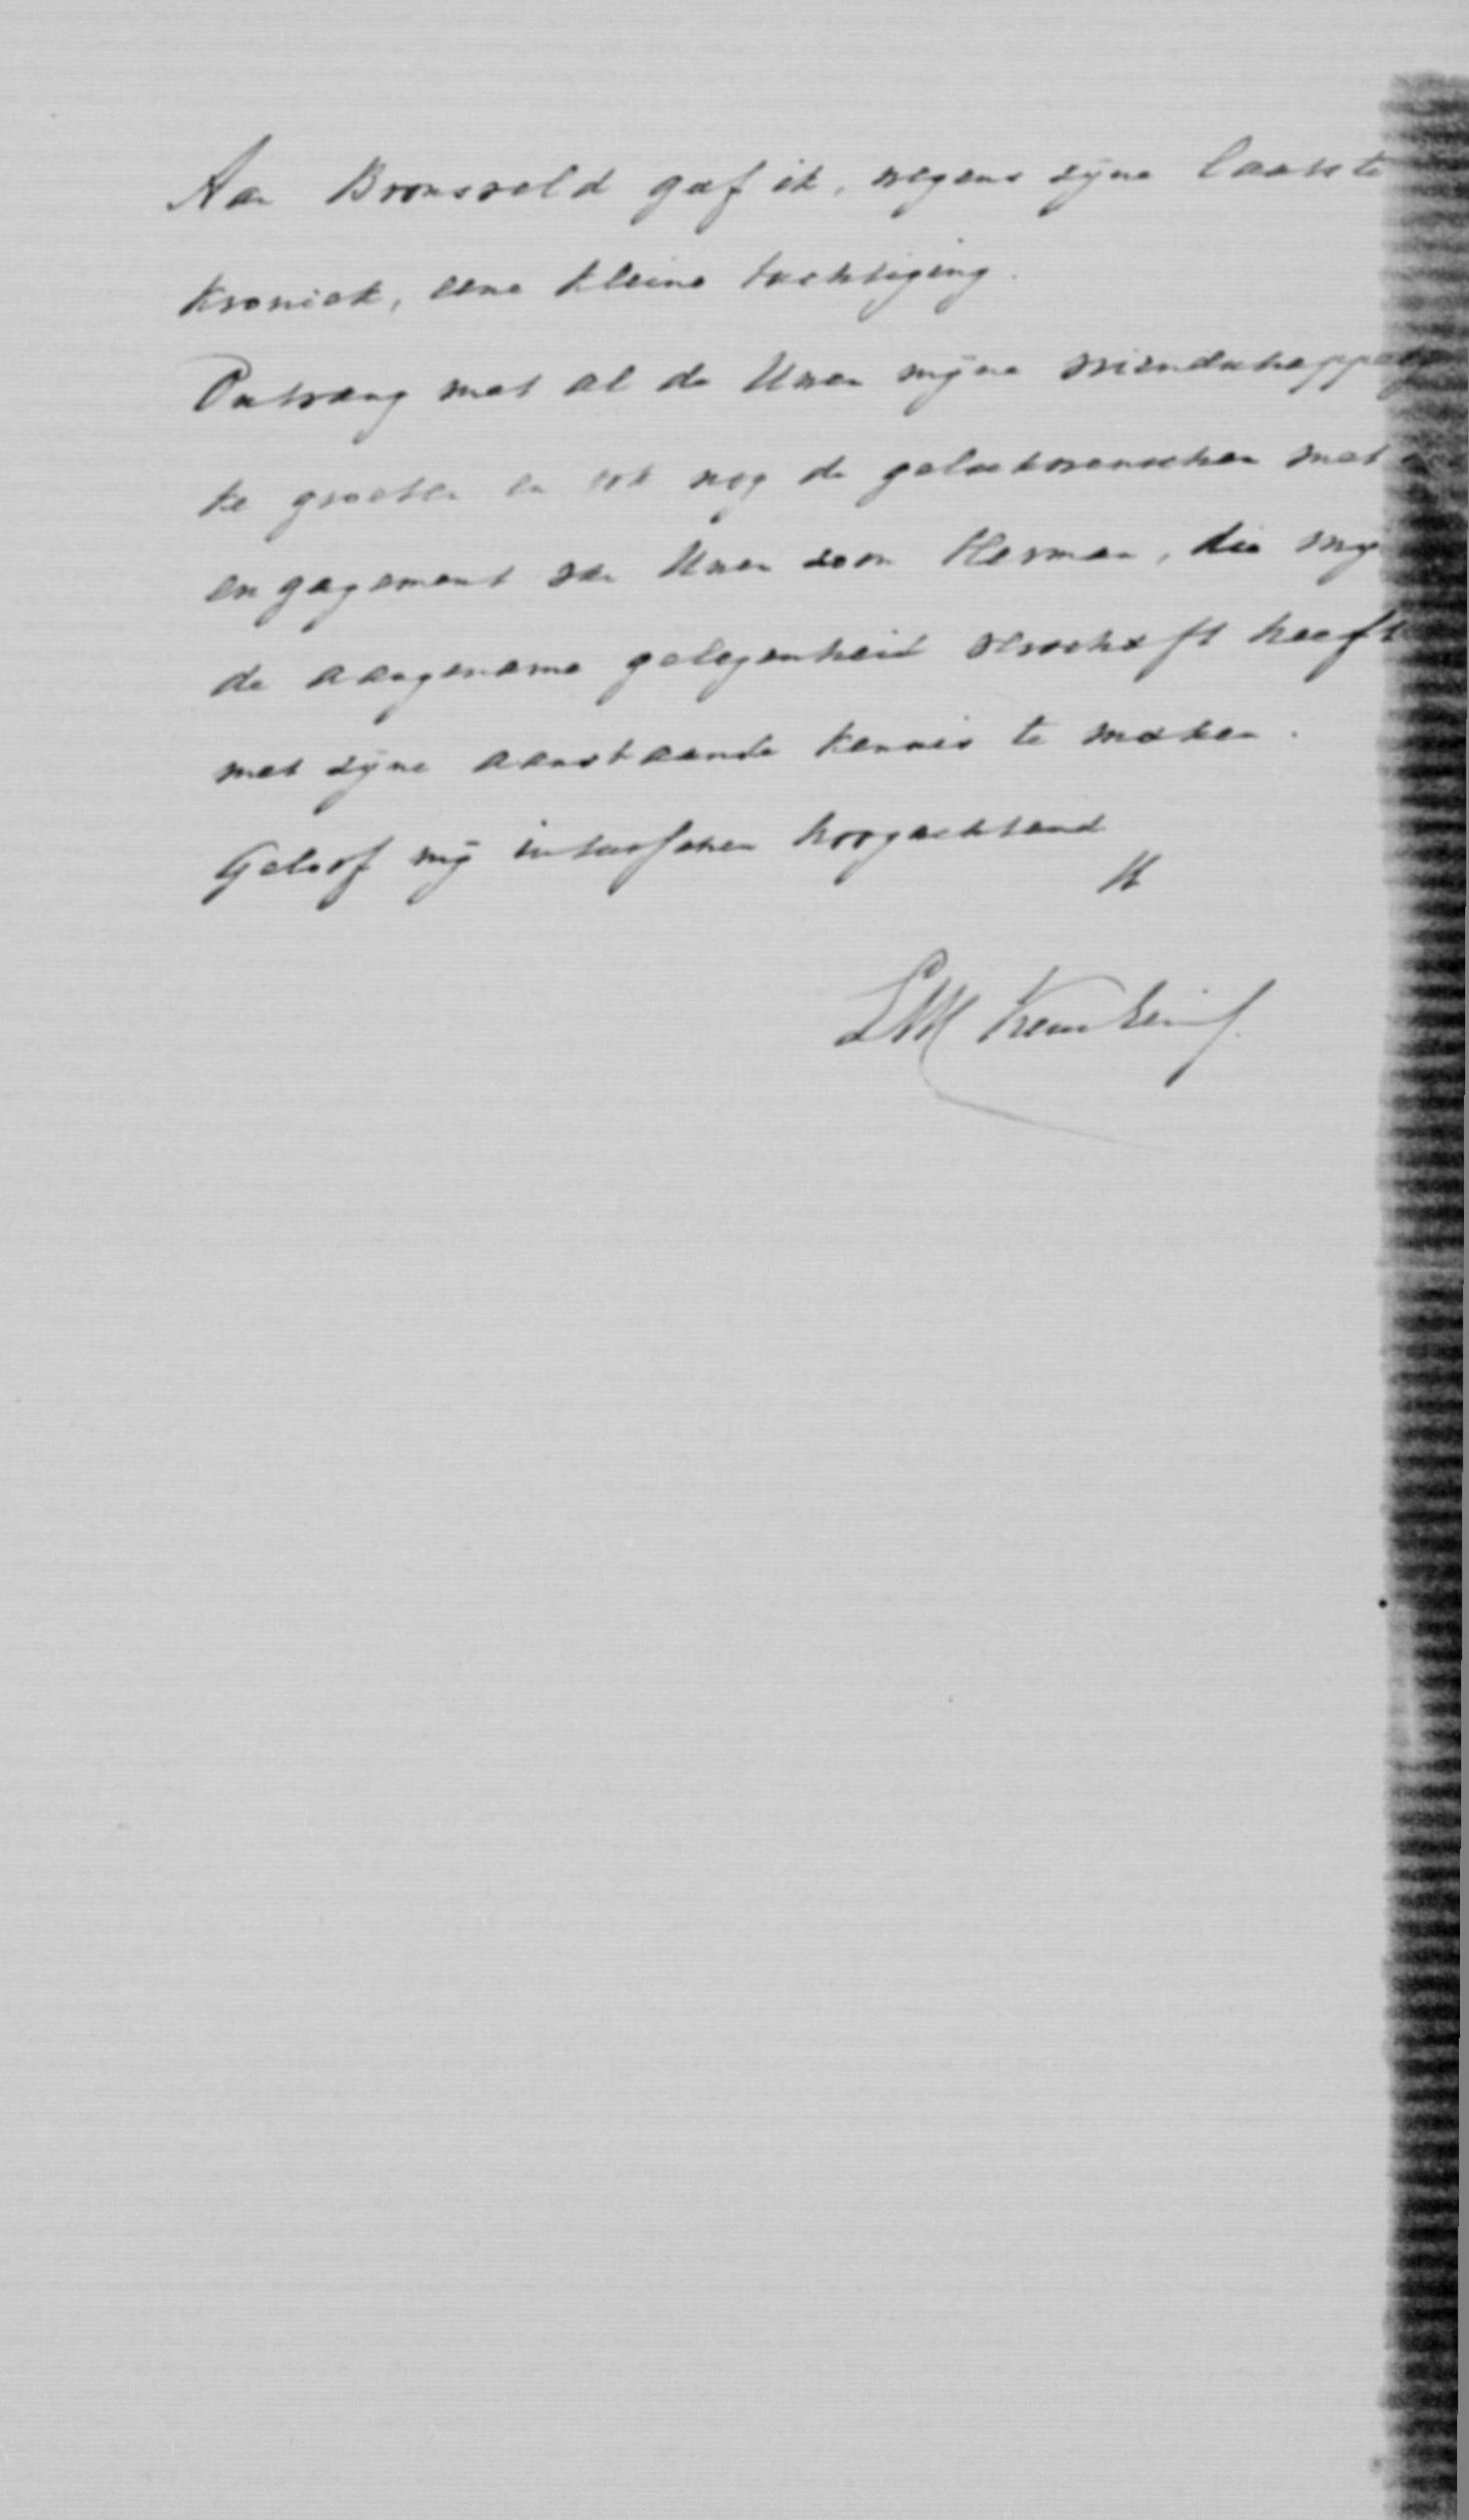 Aan Bronsveld gaf ik, wegens zijne laatste
Kroniek, eene kleine tuchtiging.
Ontvang met al de Uwen mijne vriendschappelij
ke groeten en ook nog de gelukwenschen met
engagement van Uwen zoon Herman, die mij
de aangename gelegenheid verschaft heeft
met zijne aanstaande kennis te maken.
Geloof mij intusschen hoogachtend